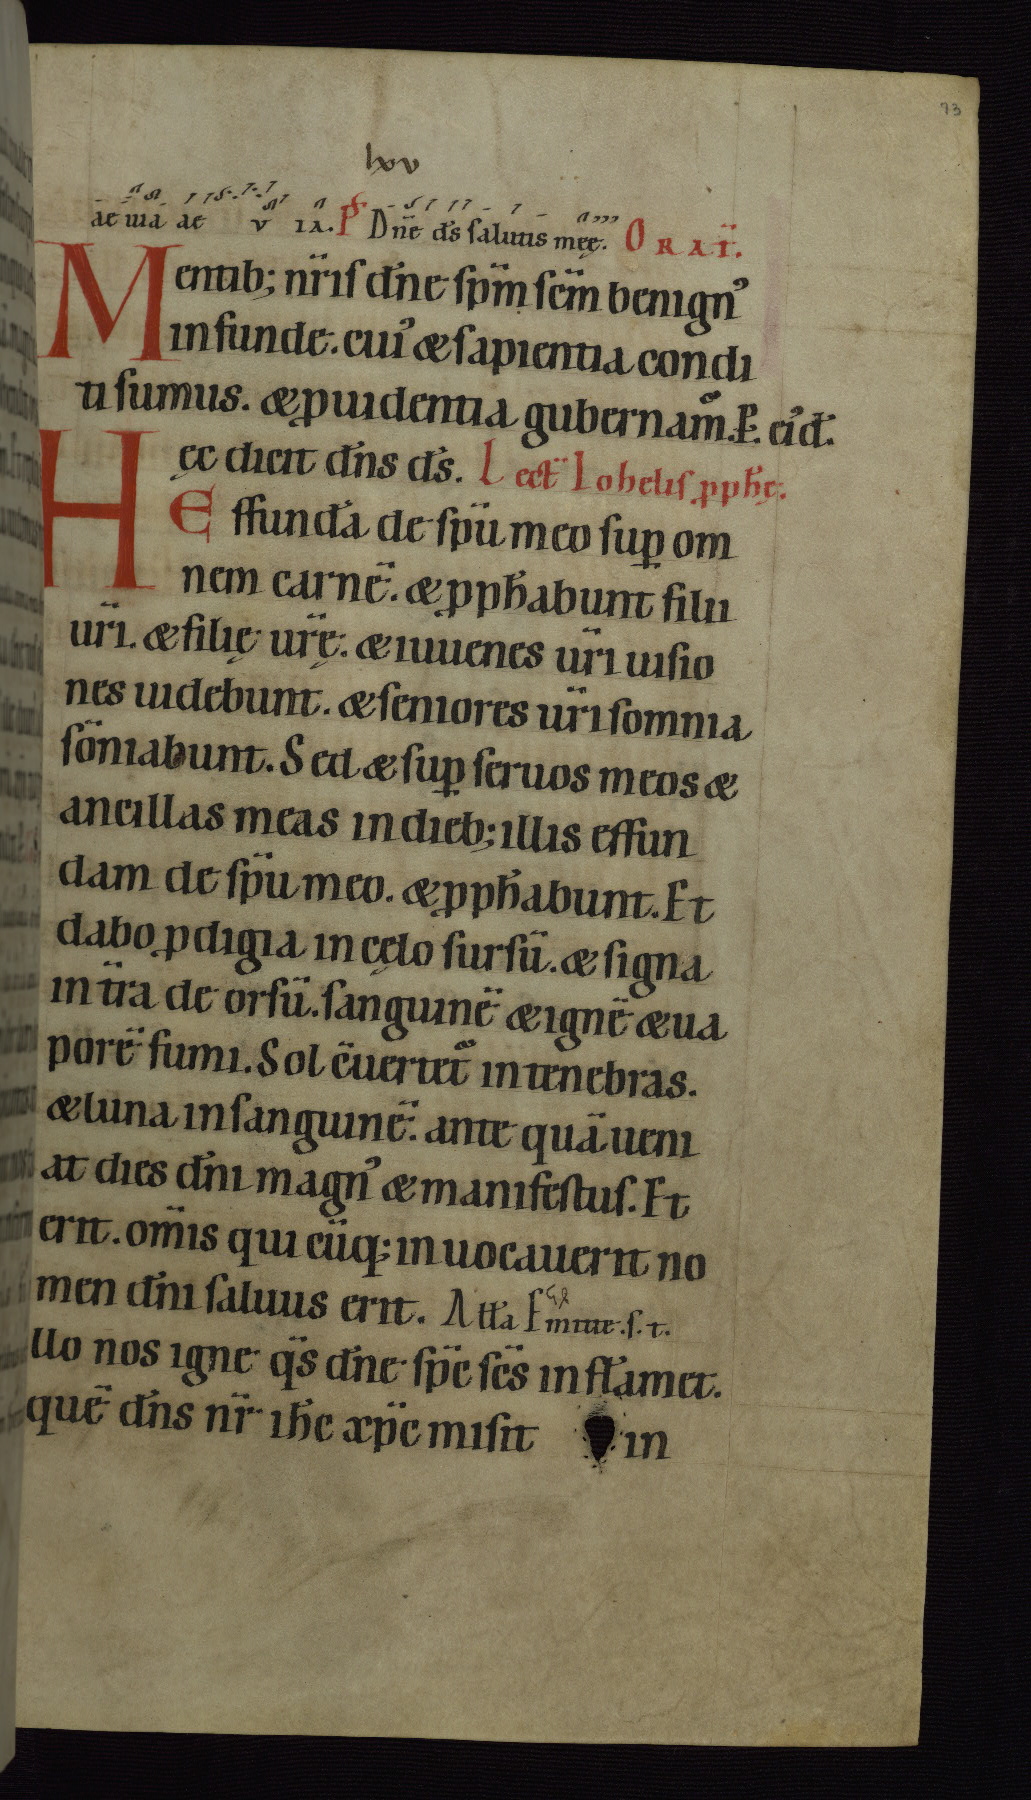 73
lxv
ae uia ae v ia. Ps Dn̄e ds̄ salutis meę. Orat̄.
Mentib; nr̄is dn̄e sp̄m sc̄m benign᾽
infunde. cui᾽ & sapientia condi
ti sumus. & ꝓuidentia gubernam̄. P. ei᾽d.
Hęc dicit dn̄s ds̄. Lect̄ Iohelis ꝓph̄ę.
Effundā de sp̄u meo suꝑ om
nem carnē. & ꝓph̄abunt filii
ur̄i. & filię ur̄ę. & iuuenes ur̄i uisio
nes uidebunt. & seniores ur̄i somnia
sōniabunt. Sed & suꝑ seruos meos &
ancillas meas in dieb; illis effun
dam de sp̄u meo. & ꝓph̄abunt. Et
dabo ꝓdigia in cęlo sursū. & signa
in t̄ra de orsū. sanguinē & ignē & ua
porē fumi. Sol c̄uertet᷑ in tenebras.
& luna in sanguinē. ante quā ueni
at dies dn̄i magn᾽ & manifestus. Et
erit. om̄is qui cūq; inuocauerit no
men dn̄i saluus erit. A ll̄a Emitte. s. t.
Illo nos igne qs̄ dn̄e sp̄c sc̄s inflāmet.
quē dn̄s nr̄ ih̄c xp̄c misit in